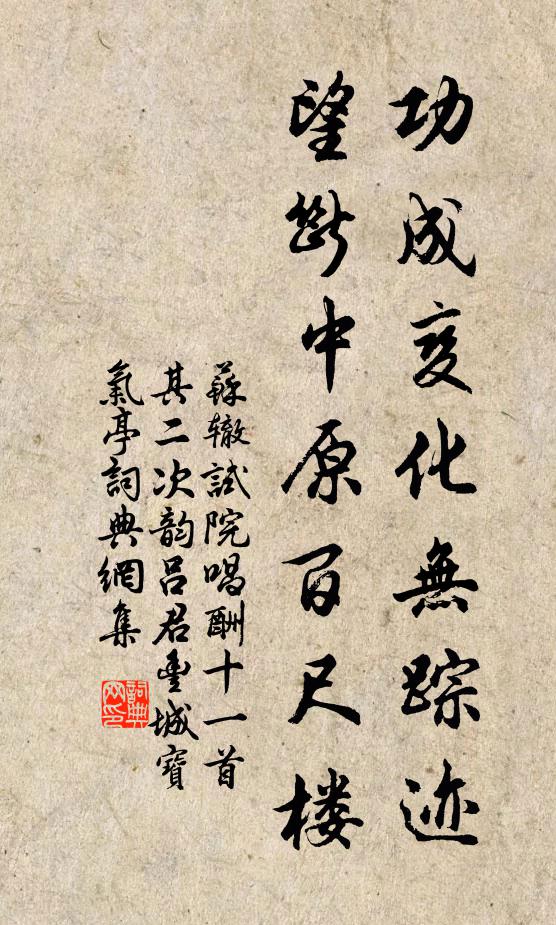 功成变化無踪迹
望斷中原百尺楼
蘇辙試院唱酬十一首
其二次韵吕君豊城寶
氣亭詞典網集
詞典网印